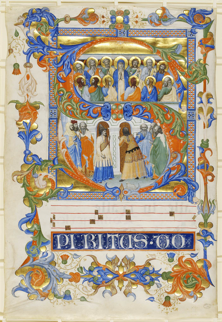 PIRITUS·DO